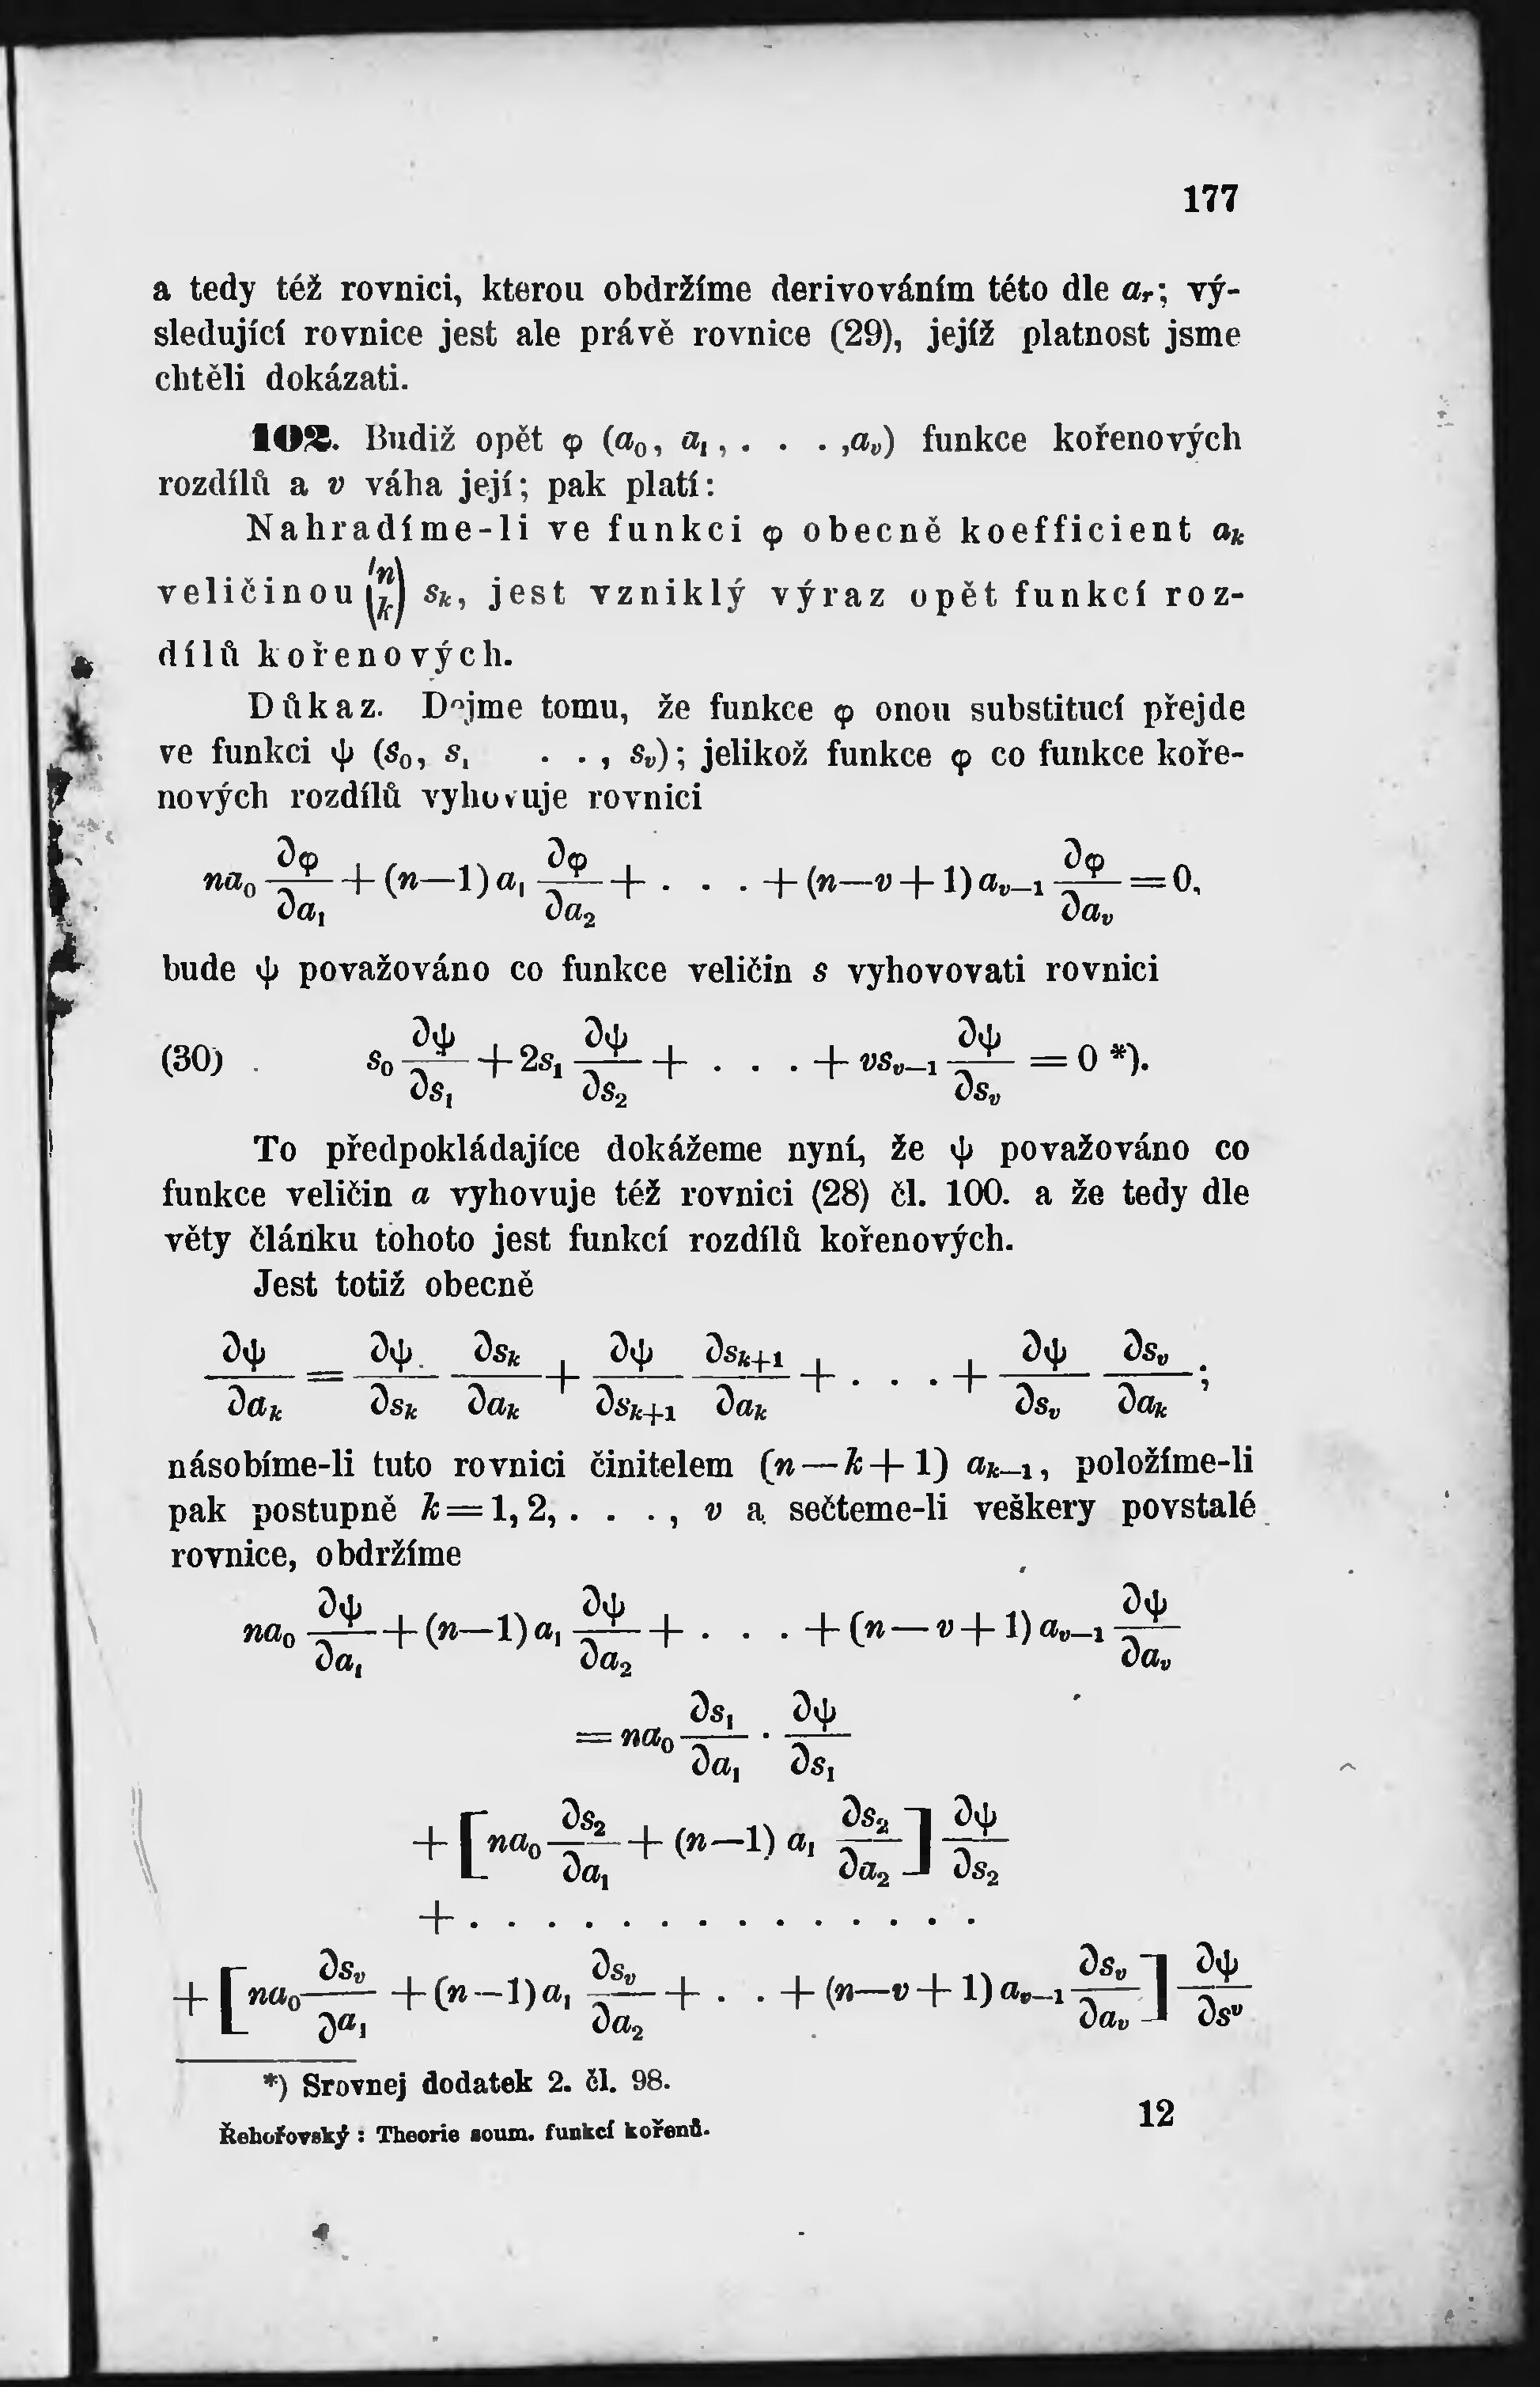 177
a tedy též rovnici, kterou obdržíme derivováním této dle aᵣ; vý-
sledující rovnice jest ale právě rovnice (29), jejíž platnost jsme
chtěli dokázati.
102. Budiž opět φ (a₀, a₁, . . . ,aᵥ) funkce kořenových
rozdílů a v váha její; pak platí:
Nahradíme-li ve funkci φ obecně koefficient aₖ
veličinou (n k) sₖ, jest vzniklý výraz opět funkcí roz-
dílů kořenových.
Důkaz. Dejme tomu, že funkce φ onou substitucí přejde
ve funkci ψ (s₀, s₁ . . , sᵥ); jelikož funkce φ co funkce koře-
nových rozdílů vyhovuje rovnici
na₀ ∂φ/∂a₁ + (n—1) a₁ ∂φ/∂a₂ + . . . + (n—v + 1) aᵥ₋₁ ∂φ/∂aᵥ = 0,
bude ψ považováno co funkce veličin s vyhovovati rovnici
(30) . s₀ ∂ψ/∂s₁ + 2s₁ ∂ψ/∂s₂ + . . . + vsᵥ₋₁ ∂ψ/∂sᵥ = 0 *).
To předpokládajíce dokážeme nyní, že ψ považováno co
funkce veličin a vyhovuje též rovnici (28) čl. 100. a že tedy dle
věty článku tohoto jest funkcí rozdílů kořenových.
Jest totiž obecně
∂ψ/∂aₖ = ∂ψ/∂sₖ ∂sₖ/∂aₖ + ∂ψ/∂sₖ₊₁ ∂sₖ₊₁/∂aₖ + . . . + ∂ψ/∂sᵥ ∂sᵥ/∂aₖ;
násobíme-li tuto rovnici činitelem (n — k + 1) aₖ₋₁, položíme-li
pak postupně k = 1, 2, . . . , v a sečteme-li veškery povstalé
rovnice, obdržíme
na₀ ∂ψ/∂a₁ + (n—1) a₁ ∂ψ/∂a₂ + . . . + (n — v + 1) aᵥ₋₁ ∂ψ/∂aᵥ
= na₀ ∂s₁/∂a₁ · ∂ψ/∂s₁
+ [na₀ ∂s₂/∂a₁ + (n—1) a₁ ∂s₂/∂a₂] ∂ψ/∂s₂
+ . . . . . . . . . . . . . .
+ [na₀ ∂sᵥ/∂a₁ + (n—1) a₁ ∂sᵥ/∂a₂ + . . + (n—v + 1) aᵥ₋₁ ∂sᵥ/∂aᵥ] ∂ψ/∂sᵛ
*) Srovnej dodatek 2. čl. 98.
Řehořovský : Theorie soum. funkcí kořenů.
12